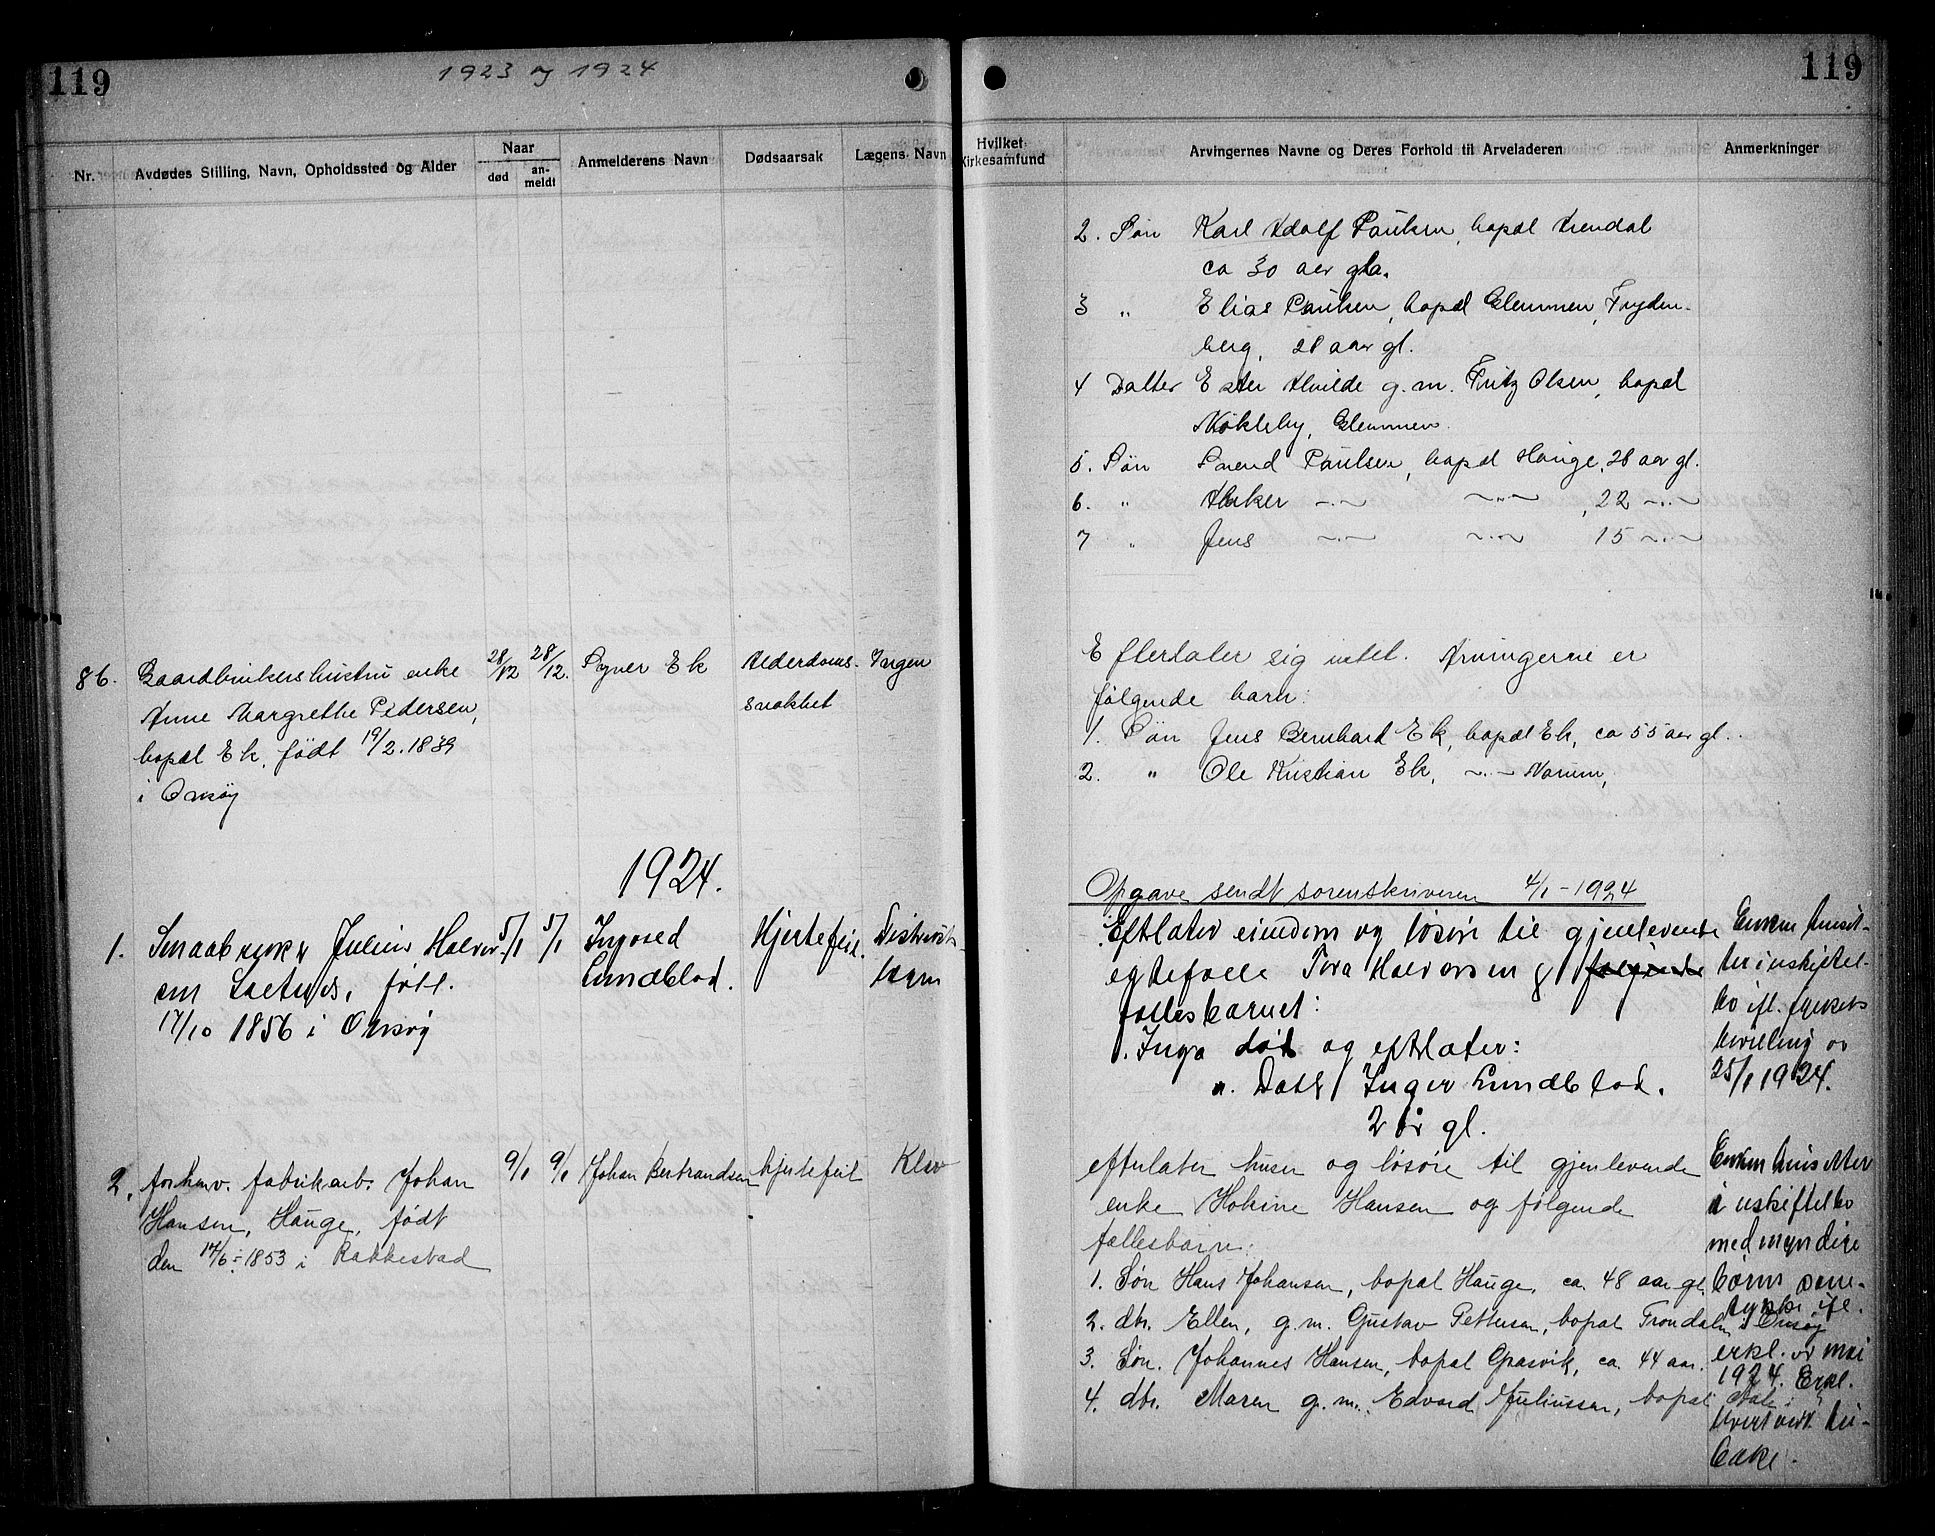 119
1923 og 1924
Nr.
Avdødes Stilling, Navn, Opholdssted og Alder
Naar
død
an-
meldt
Anmelderens Navn
Dødsaarsak
Lægens Navn
86.
Gaardbrukershustru enke
Anne Margrethe Pedersen,
bopæl Ek, født 19/2. 1839
i Onsøy
28/12
28/12.
Syver Ek
Alderdoms-
svakhet
Ingen
1924.
1. Smaabruker Julius Halvor-
sen, født.
17/10 1856 i Onsøy
5/1
5/1
Ingvald
Lundblad.
Hjertefeil.
Distrikts-
2. forhenv. fabrikarb. Johan
Hansen, Hauge, født
den 17/6 1853 i Rakkestad
9/1
9/1
Johan Bertrandsen
hjertefeil
119
Hvilket
Kirkesamfund
Arvingernes Navne og Deres Forhold til Arveladeren
Anmerkninger
2. Søn Karl Adolf Paulsen, bopæl Arendal
ca 30 aar gla.
3 " Elias Paulsen, bopæl Glemmen, Fryden-
berg, 28 aar gl.
4 Datter Ester Alvilde g.m. Fritz Olsen, bopæl
Nøkleby, Glemmen.
5. Søn Svend Paulsen, bopæl Hauge, 28 aar gl.
6. " —"— —"—, 22 —"—
7 " Jens —"— —"— 15 —"—
Efterlater sig intet. Arvingerne er
følgende barn:
1. Søn Jens Bernhard Ek, bopæl Ek, ca 55 aar gl.
2. " Ole Kristian Ek, —"— Narum,
Opgave sendt sorenskriveren 4/1 - 1924
Eftlater eiendom og løsøre til gjenlevende
egtefælle Tora Halvorsen & følgende
fællesbarnet:
1. Inga død og eftlater:
a. Dat Inger Lundblad.
2 år gl.
Enken hensit-
ter i uskiftet
bo ifl. skifterets
bevilling av
25/1 1924.
efterlater huser og løsøre til gjenlevende
enke Hokine Hansen og følgende
fællesbarn:
1. Søn Hans Johansen, bopæl Hauge, ca. 48 aar gl
2. dtr. Ellen, g.m. Gustav Pettersen, bopæl Trondalen i Onsøy
3. Søn. Johannes Hansen, bopæl Gpasvik, ca. 44 aar.
4. dtr. Maren g.m. Edvard Juliussen, bopæl
Enken hensitter
i uskiftet bo
med myndige
børns sam-
tykke ifl.
erkl. av mai
1924. Erkl.